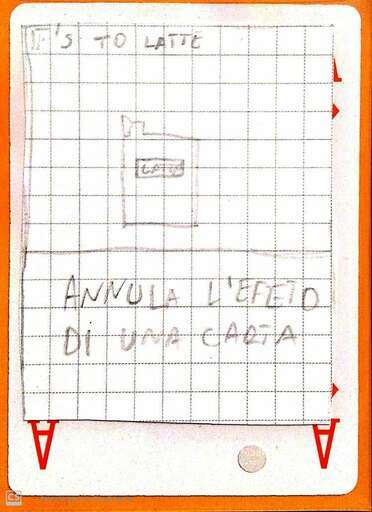 IT'S TO LATTE
LATTE
ANNULA L'EFETO
DI UNA CARTA
A A
CS